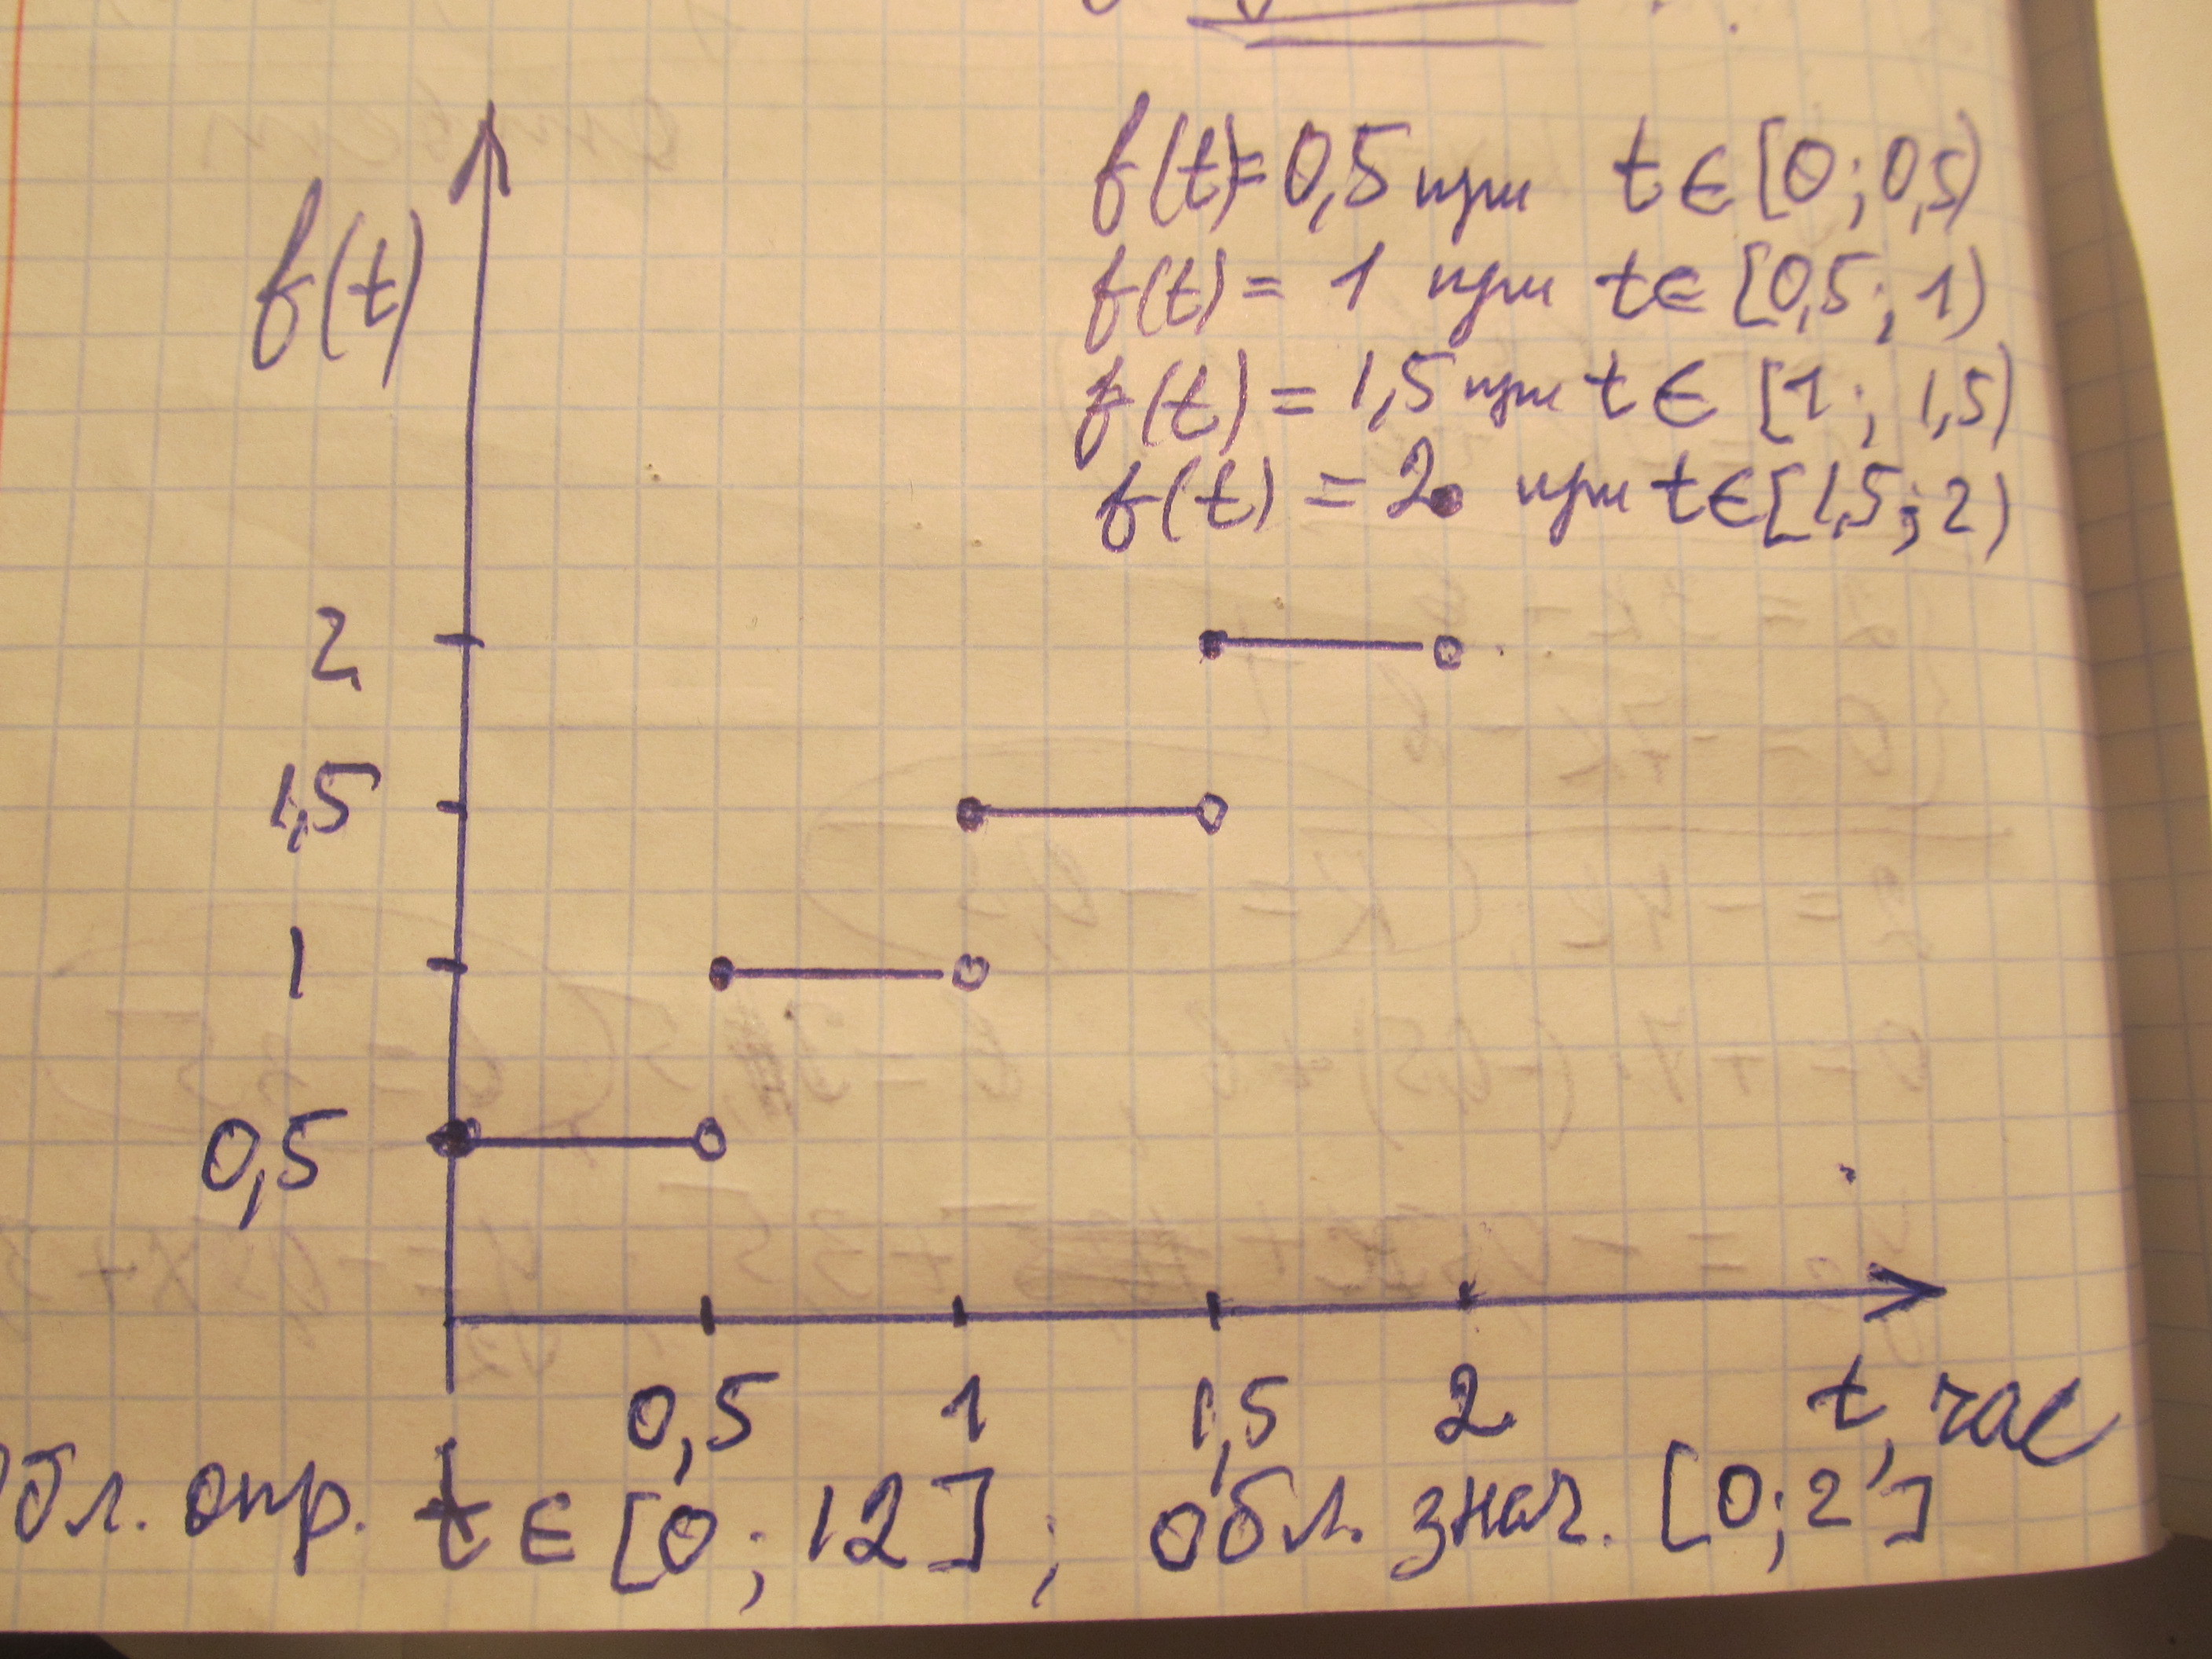 f(t)=0,5 при t∈[0;0,5)
f(t)=1 при t∈[0,5;1)
f(t)=1,5 при t∈[1;1,5)
f(t)=2 при t∈[1,5;2)
f(t)
2
1,5
1
0,5
0,5 1 1,5 2 t, час
Обл. опр. t∈[0;12]; обл. знач. [0;2]